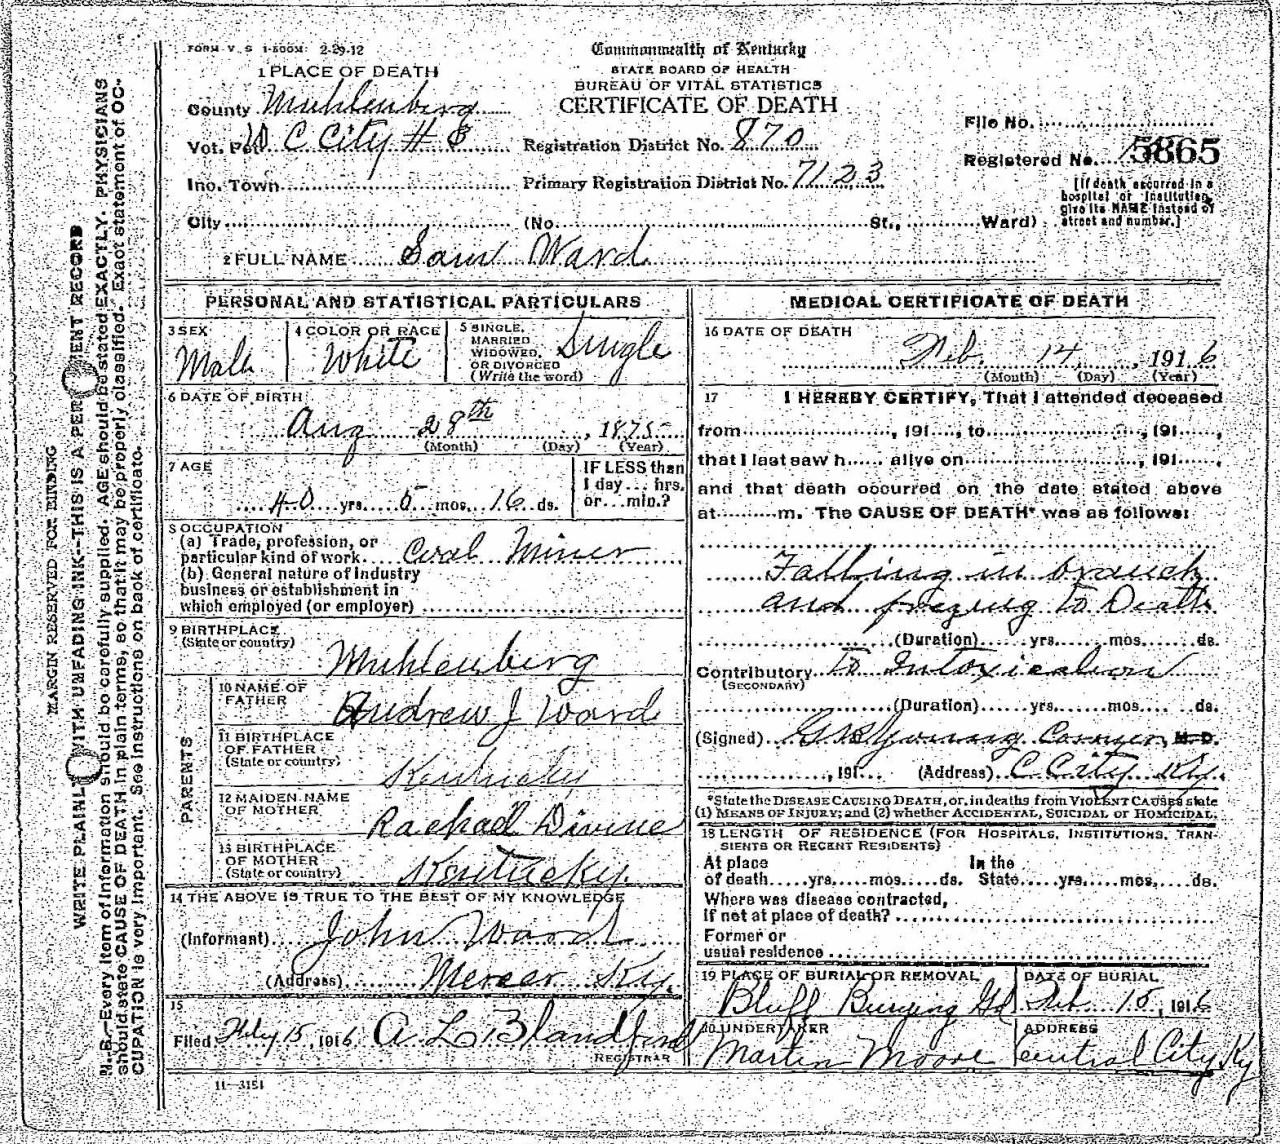 FORM V. S 1-500M 2-29-12
Commonwealth of Kentucky
STATE BOARD OF HEALTH
BUREAU OF VITAL STATISTICS
CERTIFICATE OF DEATH
1 PLACE OF DEATH
County Muhlenberg
Vot. Pct. C City # 3
Registration District No. 870
File No.
Registered No. 5865
Ino. Town
Primary Registration District No. 7123
[If death occurred in a
hospital or institution,
give its NAME instead of
street and number.]
City (No. St., Ward)
2 FULL NAME Sam Ward
PERSONAL AND STATISTICAL PARTICULARS
3 SEX
Male
4 COLOR OR RACE
White
5 SINGLE,
MARRIED
WIDOWED,
OR DIVORCED
(Write the word)
Single
6 DATE OF BIRTH
Aug 28th, 1875
(Month) (Day) (Year)
7 AGE
40 yrs. 5 mos. 16 ds.
IF LESS than
1 day... hrs.
or... min.?
8 OCCUPATION
(a) Trade, profession, or
particular kind of work Coal Miner
(b) General nature of Industry
business or establishment in
which employed (or employer)
9 BIRTHPLACE
(State or country)
Muhlenberg
PARENTS
10 NAME OF
FATHER
Andrew J Ward
11 BIRTHPLACE
OF FATHER
(State or country)
Kentucky
12 MAIDEN NAME
OF MOTHER
Rachael Divine
13 BIRTHPLACE
OF MOTHER
(State or country)
Kentucky
14 THE ABOVE IS TRUE TO THE BEST OF MY KNOWLEDGE
(Informant) John Ward
(Address) Mercer Ky.
15
Filed Feby 15, 1916 A L Blandford
REGISTRAR
11-3151
MEDICAL CERTIFICATE OF DEATH
16 DATE OF DEATH
Feb. 14, 1916
(Month) (Day) (Year)
17 I HEREBY CERTIFY, That I attended deceased
from , 191 , to , 191 ,
that I last saw h alive on , 191 ,
and that death occurred on the date stated above
at m. The CAUSE OF DEATH* was as follows:
Falling in branch
and frezing to Death
(Duration) yrs. mos. ds.
Contributory to Intoxication
(SECONDARY)
(Duration) yrs. mos. ds.
(Signed) Young Coroner, M.D.
, 191 (Address) C City Ky.
*State the DISEASE CAUSING DEATH, or, in deaths from VIOLENT CAUSES state
(1) MEANS OF INJURY; and (2) whether ACCIDENTAL, SUICIDAL or HOMICIDAL.
18 LENGTH OF RESIDENCE (FOR HOSPITALS, INSTITUTIONS, TRAN-
SIENTS OR RECENT RESIDENTS)
At place In the
of death yrs. mos. ds. State yrs. mos. ds.
Where was disease contracted,
If not at place of death?
Former or
usual residence
19 PLACE OF BURIAL OR REMOVAL
Bluff Burying Gd
DATE OF BURIAL
Feb. 15, 1916
20 UNDERTAKER
Martin Moore
ADDRESS
Central City Ky
MARGIN RESERVED FOR BINDING
WRITE PLAINLY WITH UNFADING INK--THIS IS A PERMANENT RECORD
N.B.--Every item of Information should be carefully supplied. AGE should be stated EXACTLY. PHYSICIANS
should state CAUSE OF DEATH in plain terms, so that it may be properly classified. Exact statement of OC-
CUPATION is very Important. See Instructions on back of certificate.